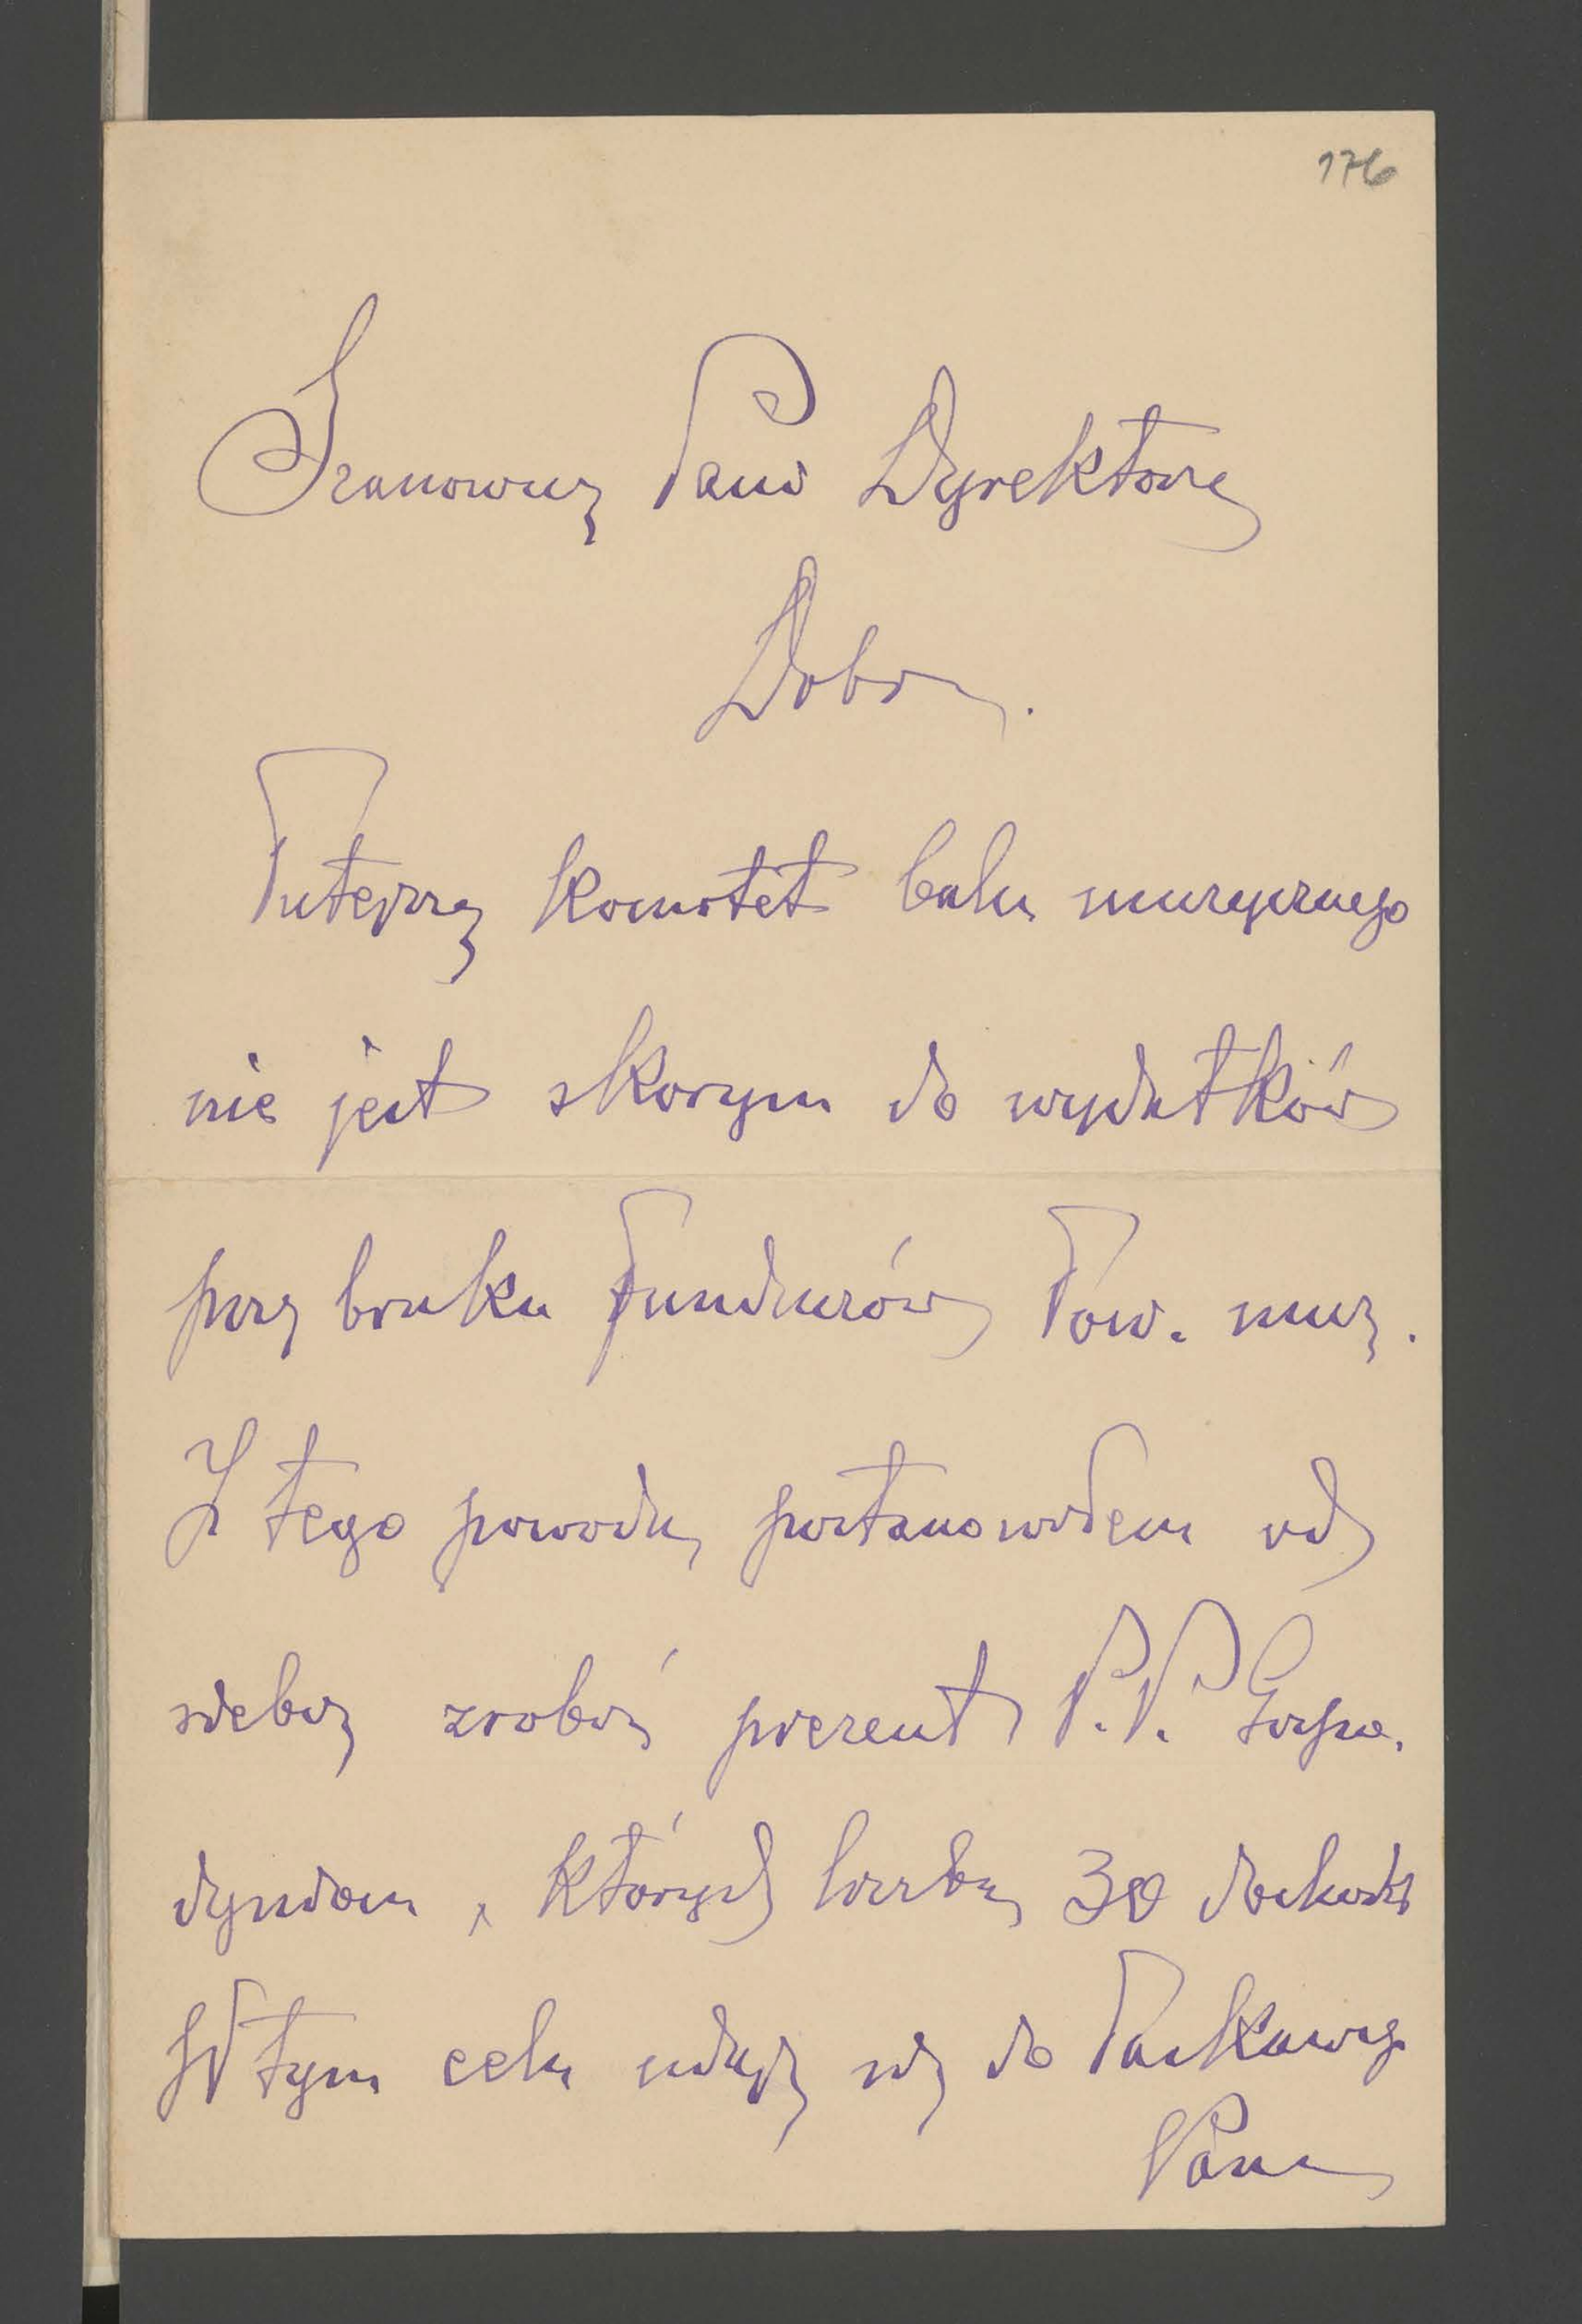 176
Szanowny Panie Dyrektorze
Dobr.
Tutejszy Komitet balu muzycznego
nie jest skorym do wydatków
przy braku funduszów Tow. muz.
Z tego powodu postanowiłem od
siebie zrobić prezent P.P. Gospo-
dyniom, których liczba 30 dochodzi
W tym celu udaję się do Łaskawego
Pana